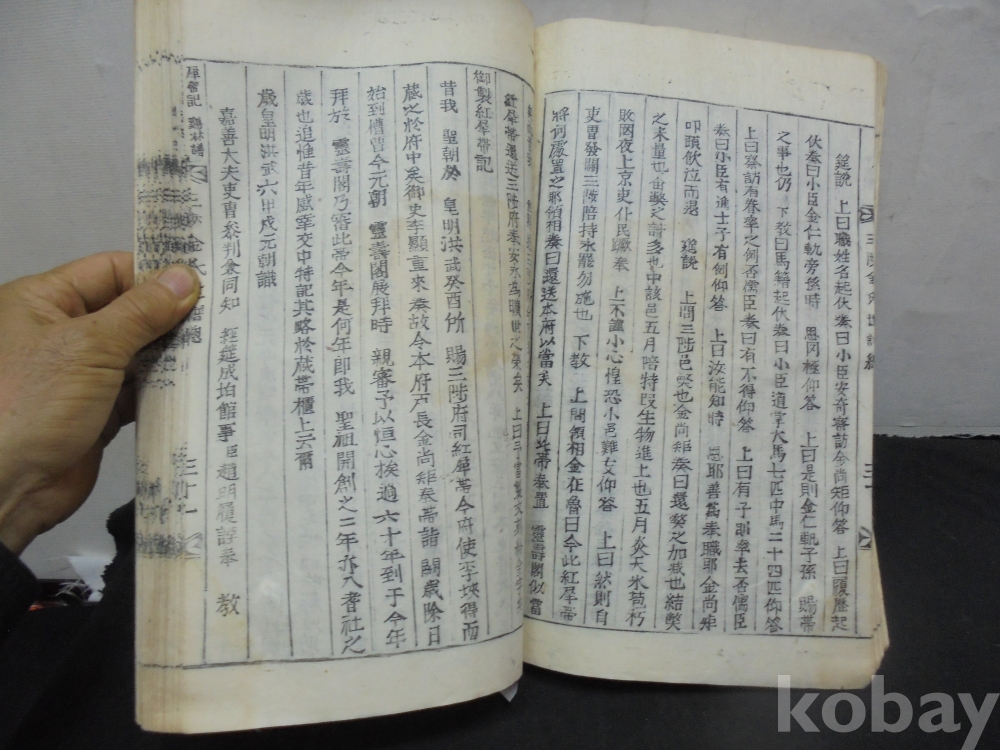 筵說 上曰職姓名起伏奏曰小臣安奇察訪金尚矩仰答 上曰履歷起
伏奏曰小臣金仁軌旁孫時 恩罔極仰答 上曰是則金仁軌子孫 賜帶
之事也仍 下敎曰馬籍起伏奏曰小臣道掌大馬七匹中馬二十四匹仰答
上曰察訪有眷率之例否儒臣奏曰有不得仰答 上曰有子朔率去否儒臣
奏曰小臣有進士子有例仰答 上曰汝能知時 恩耶善爲奉職耶金尚矩
叩頭飮泣而退 筵說 上問三陟邑弊也金尚矩奏曰還弊之加哉也結弊
之米量也 中該邑五月陪持假生物進上也五月炎天氷苞朽
敗罔夜上京吏仆民蹶奉 上不謹小心惶恐小邑難支仰答 上曰然則自
吏曹發關三陟陪持永罷勿施也 下敎 上問領相金在魯曰今此紅犀帶
將何處置之耶領相奏曰還送本府以當矣 上曰此帶奉置 靈壽閣似當
紅犀帶還送三陟府奉安永爲曠世之榮矣 上曰予當製文
御製紅犀帶記
昔我 聖朝於 皇明洪武癸酉所 賜三陟府司紅犀帶今府使李埉得而
藏之於府中矣御史李顯重來奏故令本府戶長金尚矩奉帶詣 闕歲除日
始到槽曹今元朝 靈壽閣展拜時 親審予以恒心挨過六十年到于今年
拜於 靈壽閣乃審此帶今年是何年卽我 聖祖開創之二年亦入耆社之
歲也追惟昔年感幸交中特記其略於藏帶櫃上云爾
歲皇明洪武六甲戌元朝識
嘉善大夫吏曹參判兼同知 經筵成均館事臣趙明履謹奉 敎
三十一
三十一
kobay